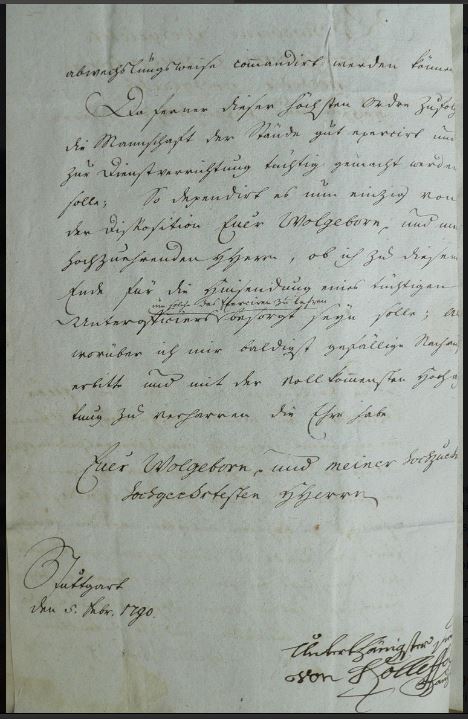 abwechslungsweise commandirt werden können
Da ferner dieser höchsten Ordre zufolg
die Mannschaft der Stände gut exercirt und
zur Dienstverrichtung tüchtig gemacht werden
solle; So dependirt es nun einzig von
der Disposition Euer Wolgeborn, und
Hochzuehrenden HHerrn, ob ich zu diesem
Ende für die Hinsendung eines tüchtigen
um solche das Exerciren zu lehren
Unterofficiers besorgt seyn solle;
worüber ich mir baldigst gefällige
erbitte und mit der vollkommensten Hochach
tung zu verharren die Ehre habe
Euer Wolgeborn, und meiner Hochzueh
Hochgeehrtesten HHerrn
Stuttgart
den 5. Febr. 1790.
Unterthänigster
von